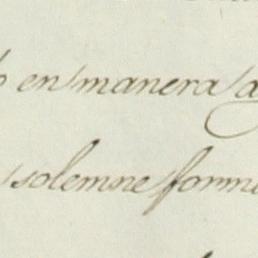 en manera
solemne forma